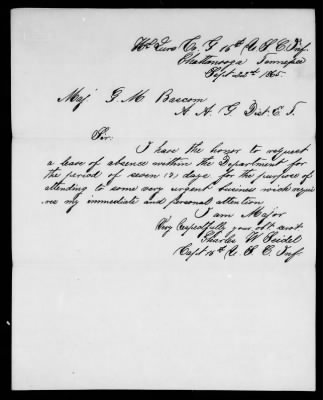 Hd Qurs Co, G 16th U S C Inf.
Chattanooga Tennessee
Sept 22d 1865.
Maj. G. M. Bascom
A. A. G. Dist. E. T.
Sir.
I have the honor to request
a leave of absence within the Department for
the period of seven (7) days for the purpose of
attending to some very urgent business wich requi
res my immediate and personal attention
I am Major
Very Respectfully your obt servt
Charles W. Seidel
Capt 16th U. S. C. Inf.